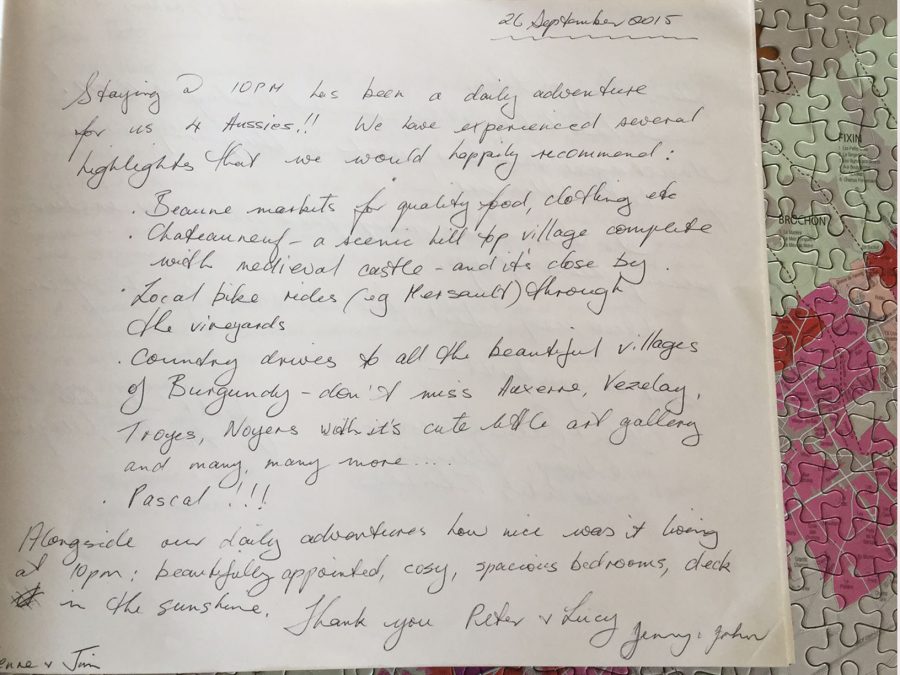 26 September 2015
Staying @ 10PM has been a daily adventure
for us 4 Aussies!! We have experienced several
highlights that we would happily recommend:
· Beaune markets for quality food, clothing etc
· Chateauneuf – a scenic hill top village complete
with medieval castle – and it's close by.
· Local bike rides (eg Mersault) through
the vineyards
· Country drives to all the beautiful villages
of Burgundy – don't miss Auxerre, Vezelay,
Troyes, Noyers with it's cute little art gallery
and many, many more....
· Pascal !!!
Alongside our daily adventures how nice was it living
at 10pm: beautifully appointed, cosy, spacious bedrooms, deck
in the sunshine. Thank you Peter & Lucy
Jenny & John
& Jim
FIXIN
BROCHON